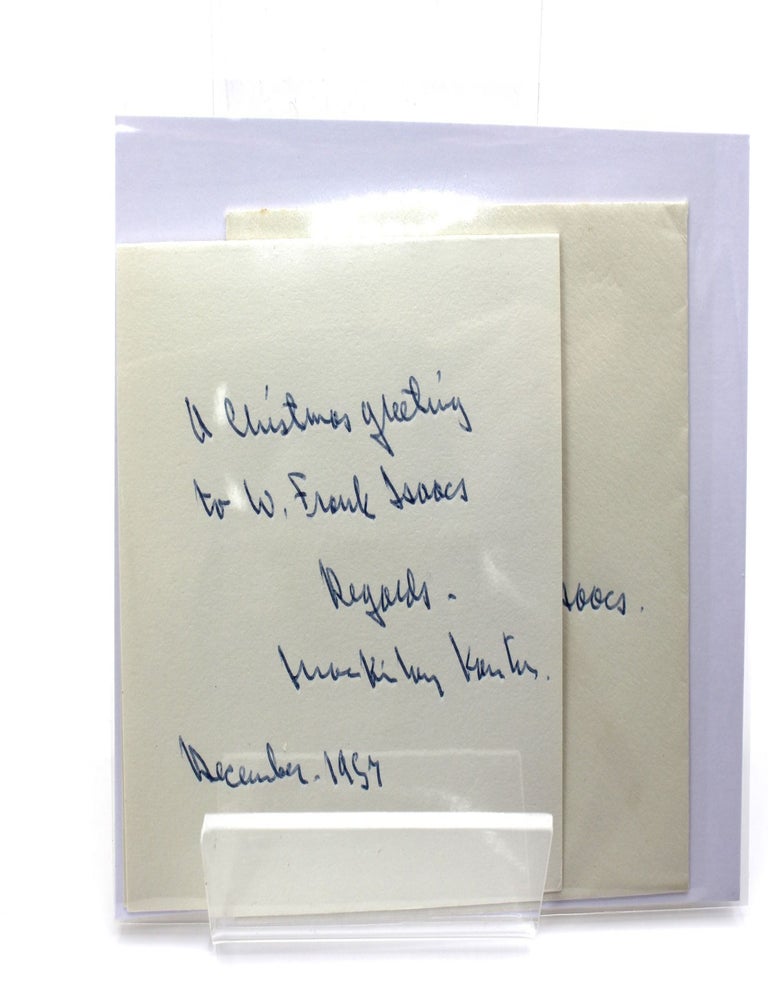 A Christmas greeting
to W. Frank Isaacs
Regards -
MacKinlay Kantor.
December. 1957
saacs.